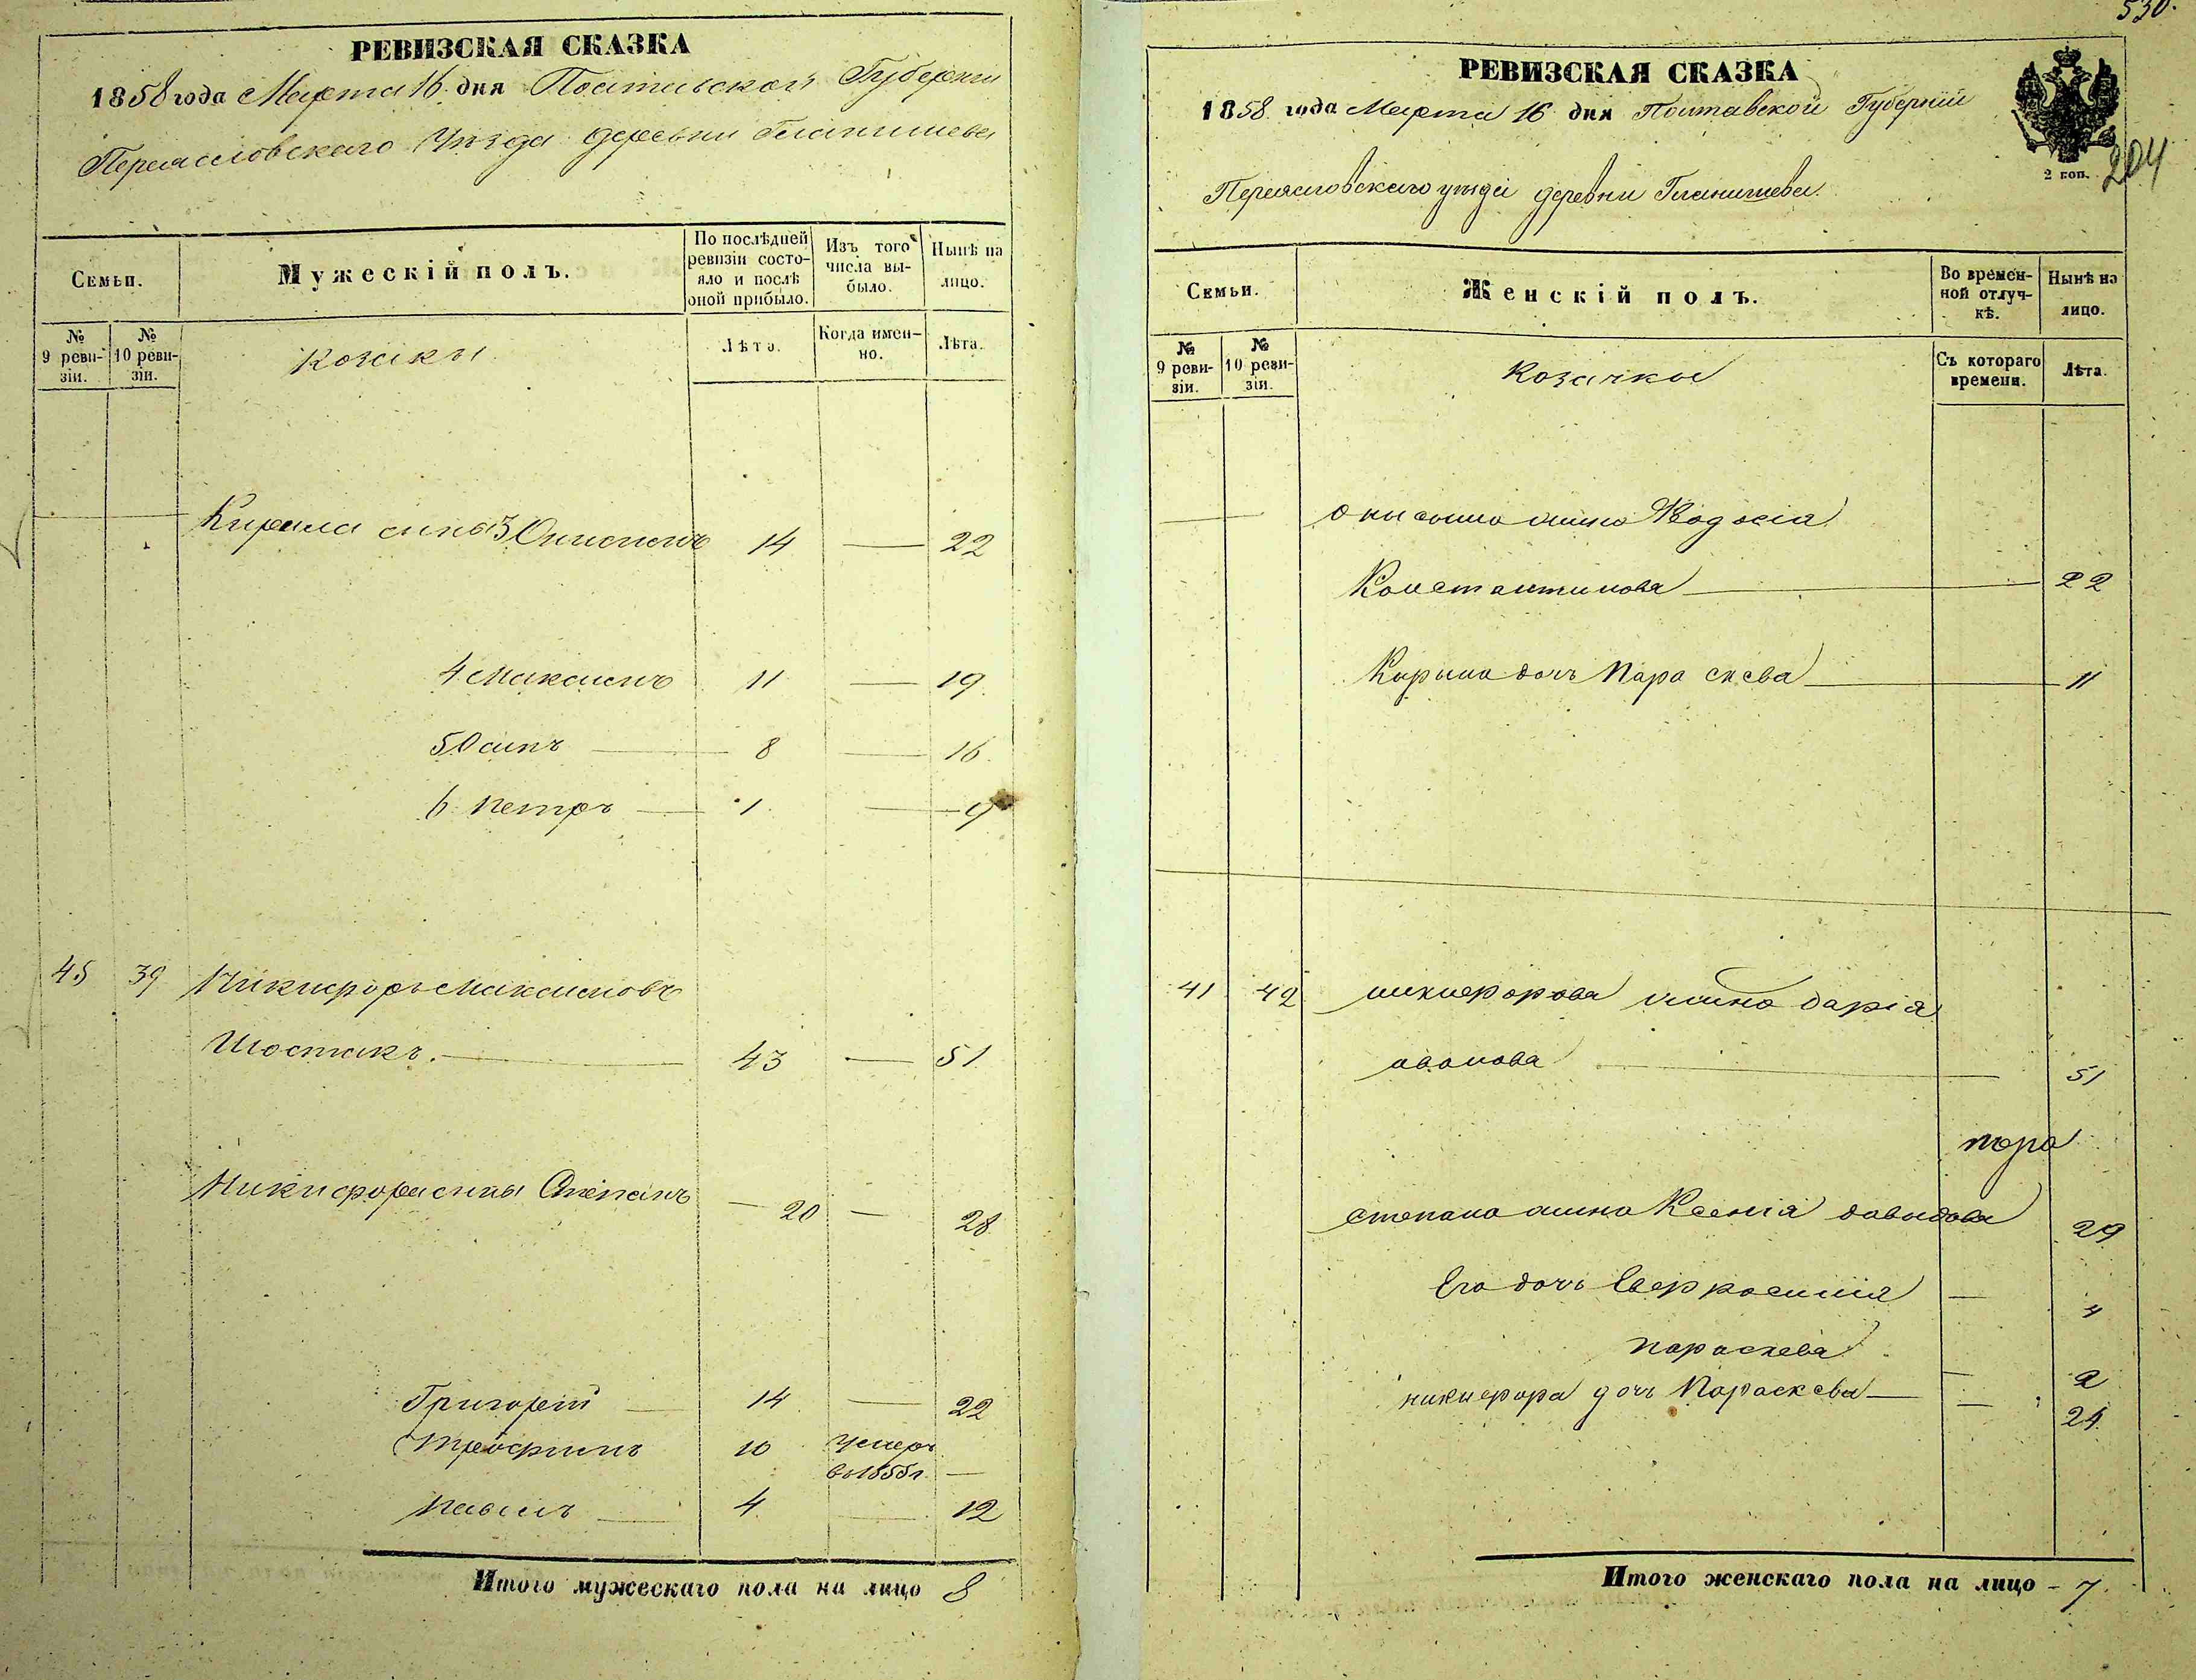 РЕВИЗСКАЯ СКАЗКА
1858 года Марта 16 дня Полтавской Губернии
Переясловскаго Уезда деревни Гланишева
Семьи.
Мужескій полъ.
По послѣдней ревизіи состояло и послѣ оной прибыло.
Изъ того числа выбыло.
Нынѣ на лицо.
№ 9 ревизіи.
№ 10 ревизіи.
Козаки
Лѣта.
Когда именно.
Лѣта.
Кирила сины 3 Онисимъ 14 — 22
4 Максимъ 11 — 19
5 Осипъ — 8 — 16
6 Петръ — 1 — 9
45 39 Никифоръ Максимовъ
Шостакъ. — 43 — 51
Никифора сины Степанъ — 20 — 28
Григорій — 14 — 22
Трофимъ 10 умеръ
в 1855 г. —
Павелъ — 4 — 12
Итого мужескаго пола на лицо 8
530.
РЕВИЗСКАЯ СКАЗКА
1858 года Марта 16 дня Полтавской Губерніи
204
2 коп.
Переясловскаго уезда деревни Гланишева.
Семьи.
Женскій полъ.
Во временной отлучкѣ.
Нынѣ на лицо.
№ 9 ревизіи.
№ 10 ревизіи.
Козачки
Съ котораго времени.
Лѣта.
Онисима жина Феодосія
Константинова — 22
Кирыла дочъ Параскева — 11
41 42 никифорова жина дарія
ивонова — 51
пора
степана жина Ксенія давидова 29
Его дочъ Евфросинія — 4
Параскева — 2
никифора дочъ Параскева — 24
Итого женскаго пола на лицо - 7.